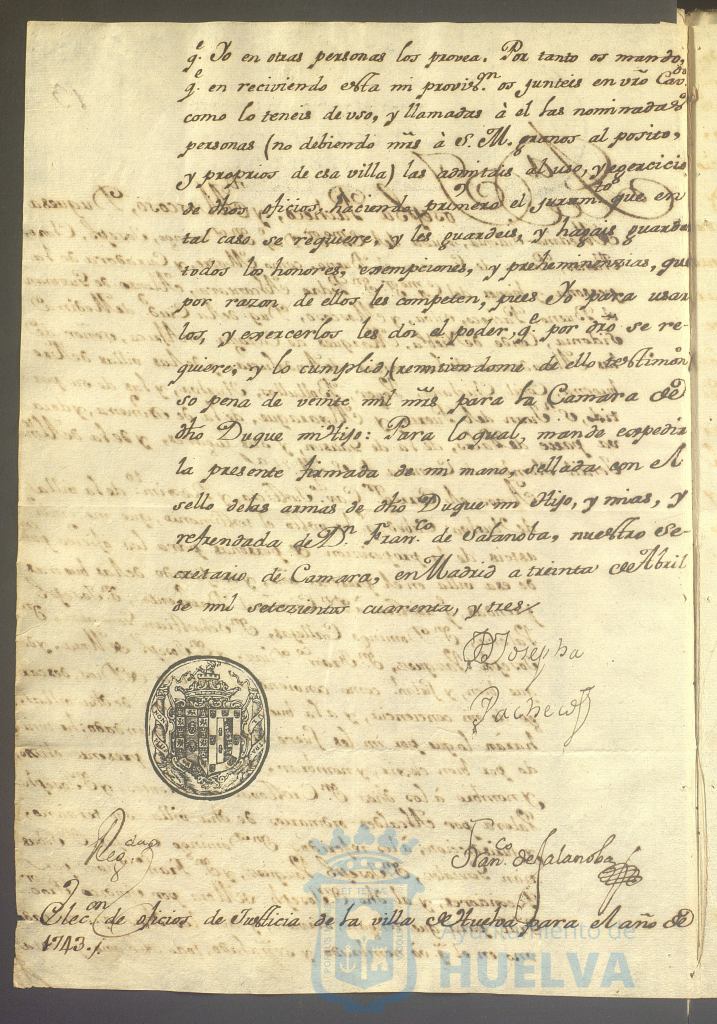 q.e Yo en otras personas los provea. Por tanto os mando,
q.e en reciviendo esta mi provis.on os junteis en vr̃o Cav.do
como lo teneis de uso, y llamadas à el las nominadas
personas (no debiendo mr̃s à S. M. granos al posito,
y proprios de esa villa) las admitais al uso, y egercicio
de dhos oficios, haciendo primero el juram.to que en
tal caso se requiere, y les guardeis, y hagais guardar
todos los honores, exempciones, y preheminenzias, que
por razon de ellos les competen, pues Yo para usar
los, y exercerlos les doi el poder, q.e por dr̃o se re-
quiere, y lo cumplid (remitiendome de ello testimon.o
so pena de veinte mil mr̃s para la Camara de
dho Duque mi Hijo: Para lo qual, mande expedir
la presente firmada de mi mano, sellada con el
sello de las armas de dho Duque mi Hijo, y mias, y
refrendada de D.n Fran.co de Salanoba, nuestro Se-
cretario de Camara, en Madrid a treinta de Abril
de mil setezientos cuarenta, y tres.
Josepha
Pacheco
Reg.da
Fran.co de Salanoba
Elec.on de oficios de Justicia de la villa de Huelva para el año de
1743.
Ayuntamiento de
HUELVA